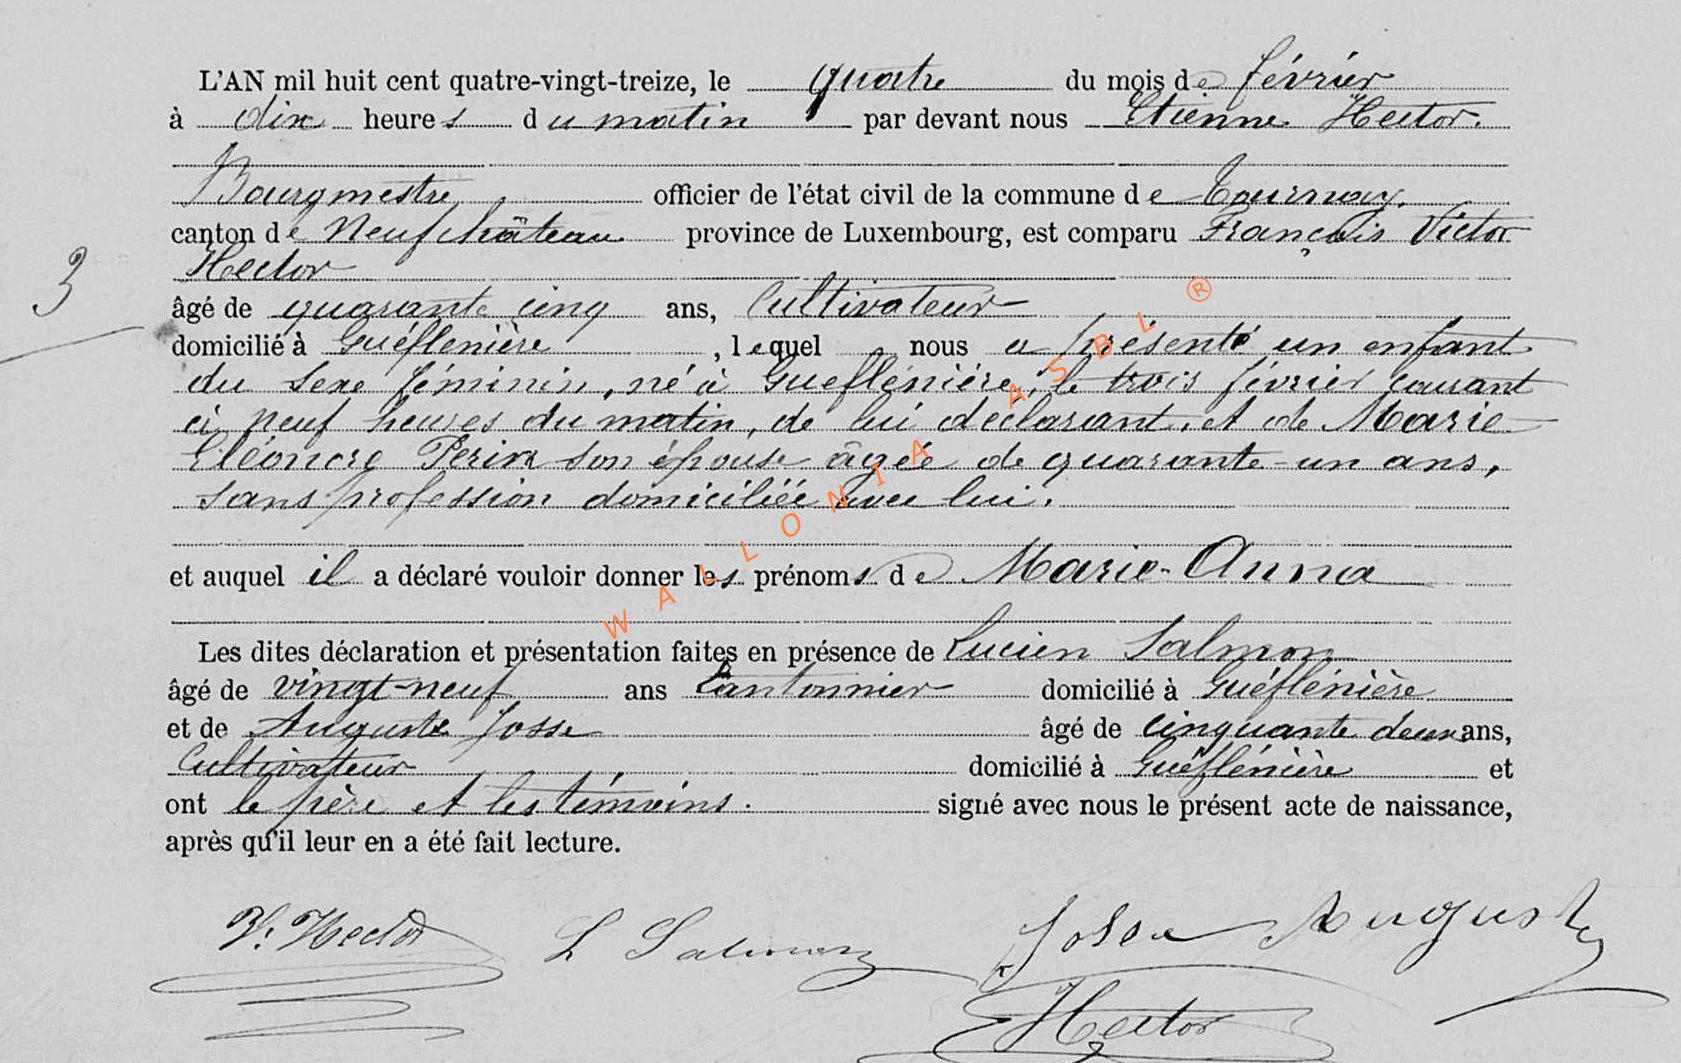 L'AN mil huit cent quatre-vingt-treize, le quatre du mois de février
à dix heures du matin par devant nous Etienne Hector.
Bourgmestre officier de l'état civil de la commune de Tournay.
canton de Neufchâteau province de Luxembourg, est comparu François Victor
Hector
âgé de quarante cinq ans, Cultivateur
domicilié à Gueflenière, lequel nous a présenté un enfant
du sexe féminin, né à Gueflénière, le trois février courant
à neuf heures du matin, de lui déclarant, et de Marie
Eléonore Perin son épouse âgée de quarante-un ans,
sans profession domiciliée avec lui.
et auquel il a déclaré vouloir donner les prénoms de Marie-Anna
Les dites déclaration et présentation faites en présence de Lucien Salmon
âgé de vingt-neuf ans Cantonnier domicilié à Gueflénière
et de Auguste Josse âgé de cinquante deux ans,
Cultivateur domicilié à Gueflénière et
ont le père et les témoins. signé avec nous le présent acte de naissance,
après qu'il leur en a été fait lecture.
3
V. Hector L Salmon Josse Auguste
Hector
WALLONIA ASBL ®